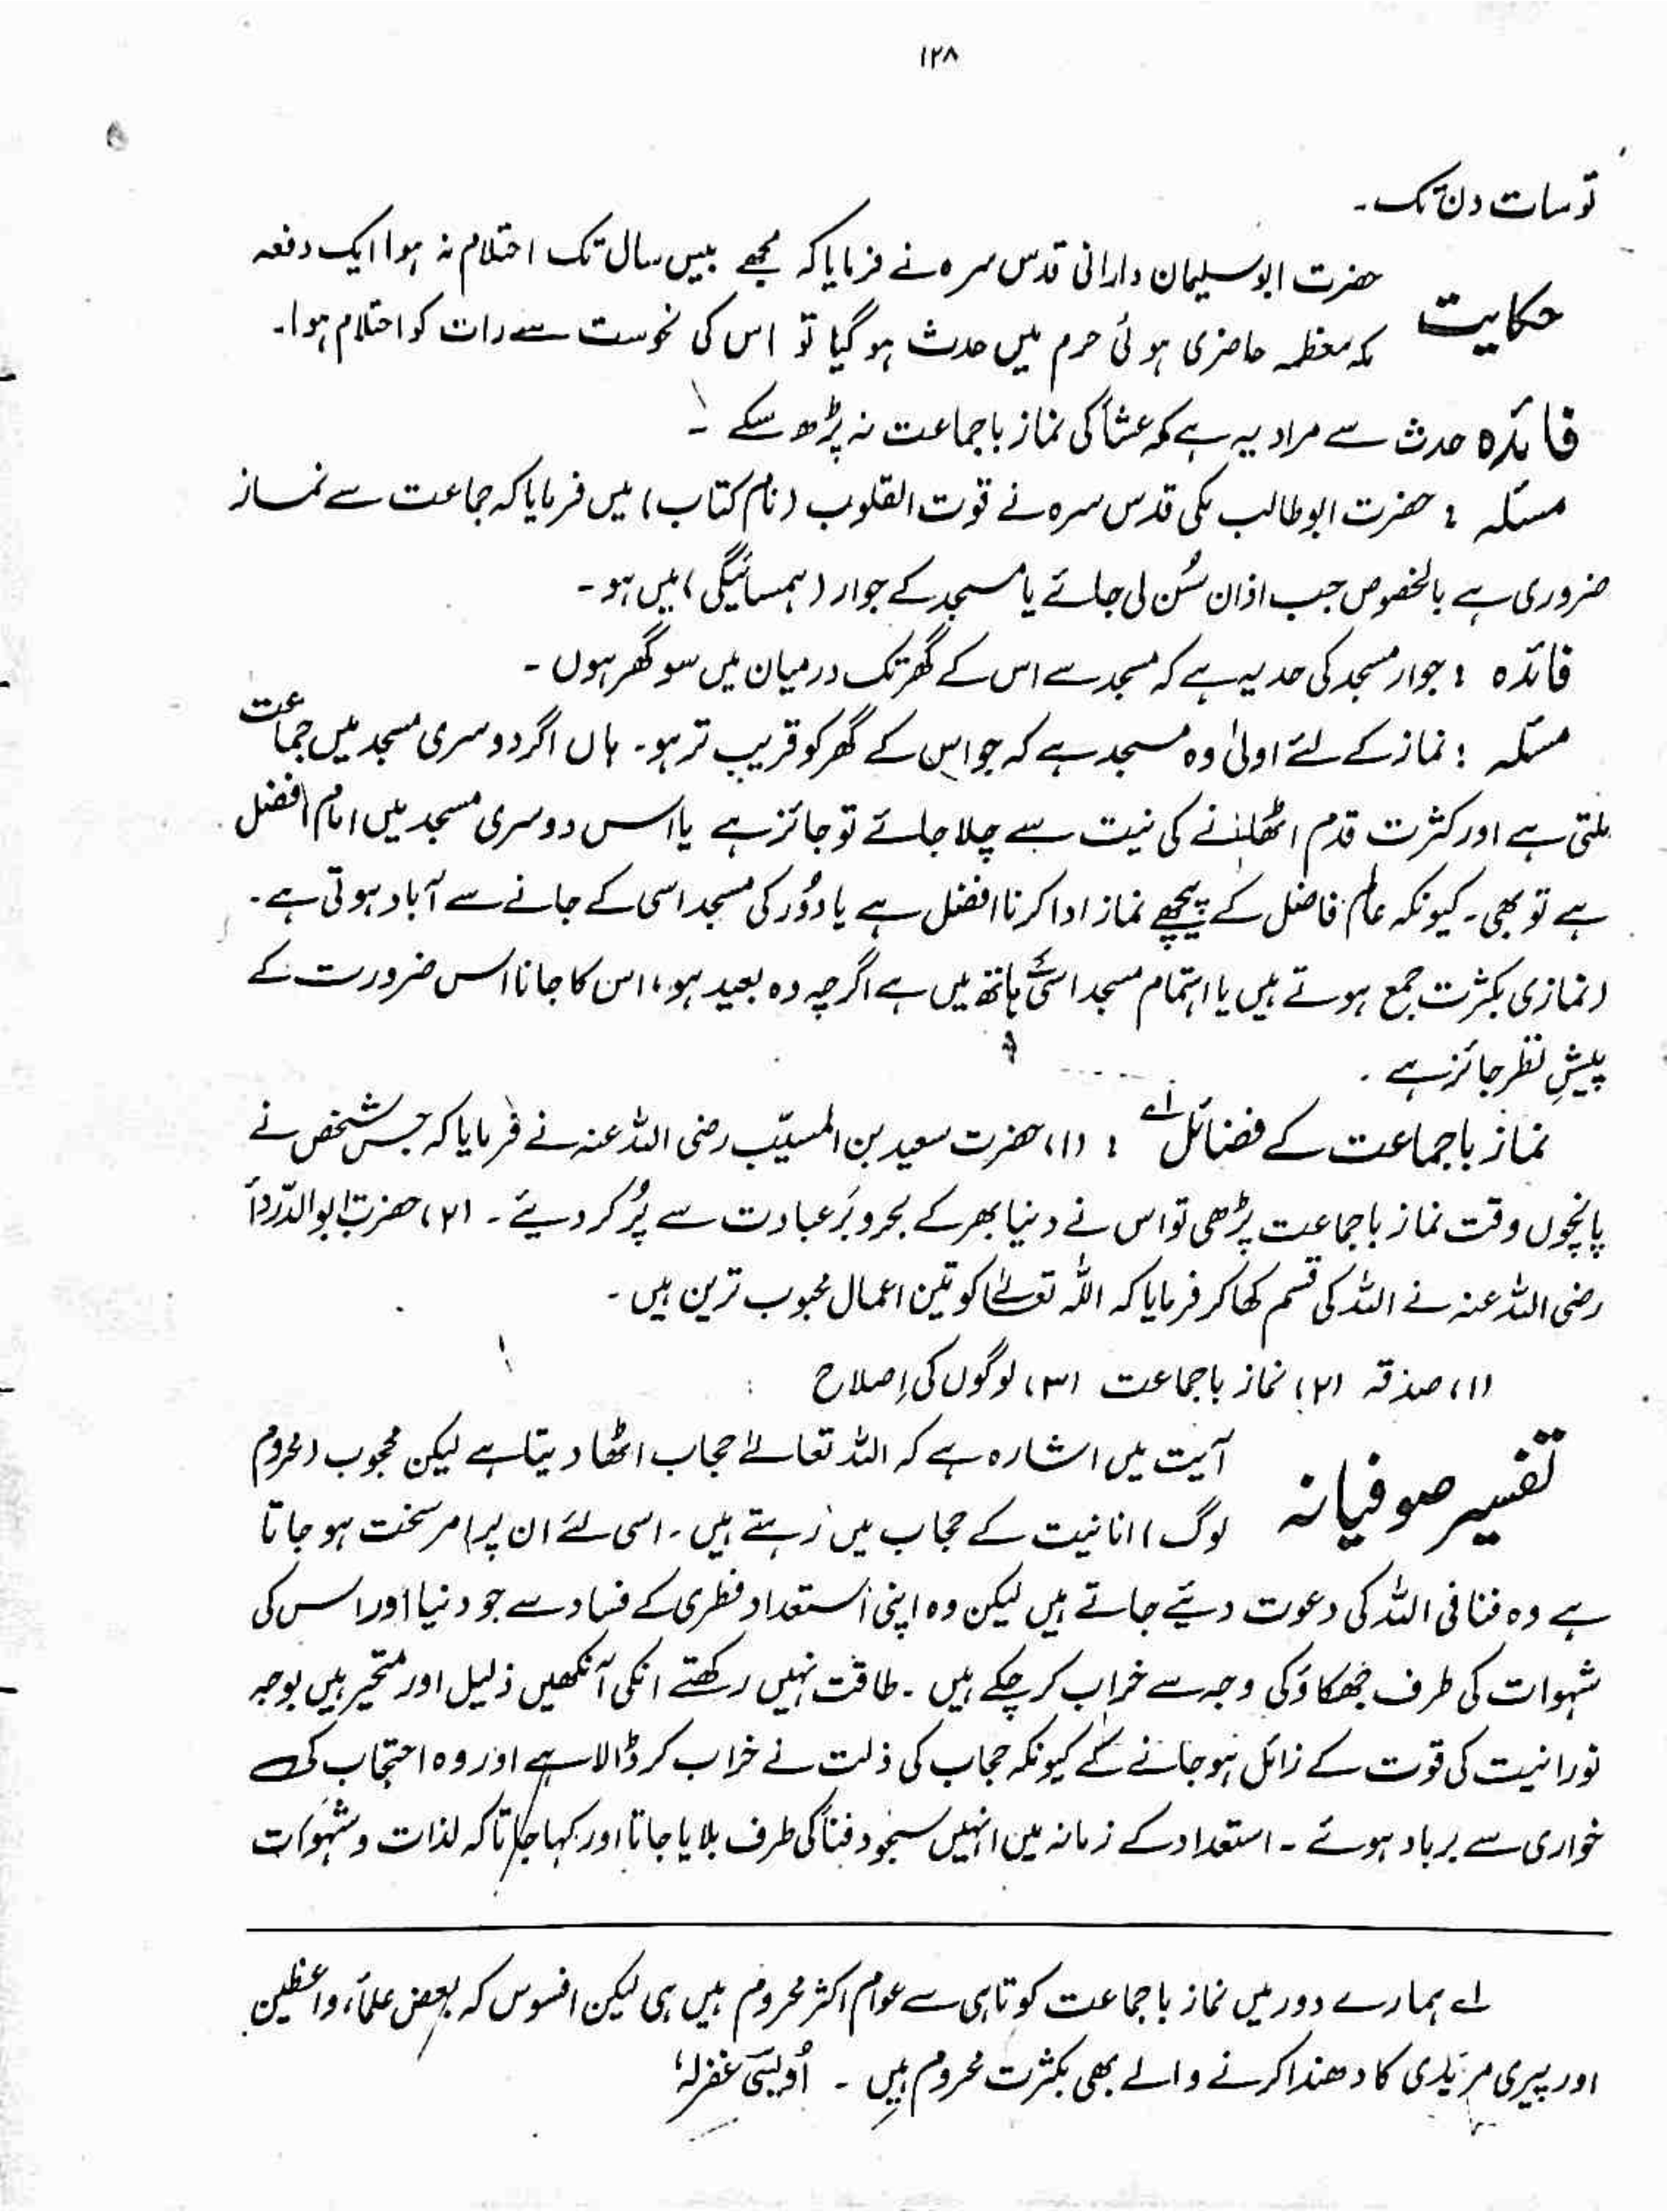 ۱۲۸
تو سات دن تک۔
حکایت
حضرت ابوسلیمان دارانی قدس سرہ نے فرمایا کہ مجھے بیس سال تک احتلام نہ ہوا ایک دفعہ
مکہ معظمہ حاضری ہوئی حرم میں حدث ہو گیا تو اس کی نحوست سے رات کو احتلام ہوا۔
فائدہ حدث سے مراد یہ ہے کہ عشأ کی نماز باجماعت نہ پڑھ سکے ۔
مسئلہ : حضرت ابوطالب مکی قدس سرہ نے قوت القلوب (نام کتاب) میں فرمایا کہ جماعت سے نماز
ضروری ہے بالخصوص جب اذان سُن لی جائے یا مسجد کے جوار (ہمسائیگی) میں ہو۔
فائدہ : جوار مسجد کی حد یہ ہے کہ مسجد سے اس کے گھر تک درمیان میں سو گھر ہوں ۔
مسئلہ : نماز کے لئے اولیٰ وہ مسجد ہے کہ جو اس کے گھر کو قریب تر ہو۔ ہاں اگر دوسری مسجد میں جماعت
ملتی ہے اور کثرت قدم اٹھانے کی نیت سے چلا جائے تو جائز ہے یا اس دوسری مسجد میں امام افضل
ہے تو بھی۔ کیونکہ عالم فاضل کے پیچھے نماز ادا کرنا افضل ہے یا دُور کی مسجد اسی کے جانے سے آباد ہوتی ہے۔
(نمازی بکثرت جمع ہوتے ہیں یا اہتمام مسجد اسی کے ہاتھ میں ہے اگرچہ وہ بعید ہو، اس کا جانا اس ضرورت کے
پیشِ نظر جائز ہے ۔
نماز باجماعت کے فضائل لے : (۱) حضرت سعید بن المسیّب رضی اللہ عنہ نے فرمایا کہ جس شخص نے
پانچوں وقت نماز باجماعت پڑھی تو اس نے دنیا بھر کے بحر و بَر عبادت سے پُر کر دیئے ۔ (۲) حضرت ابوالدّرداأ
رضی اللہ عنہ نے اللہ کی قسم کھا کر فرمایا کہ اللہ تعالےٰ کو تین اعمال محبوب ترین ہیں ۔
(۱) صدقہ (۲) نماز باجماعت (۳) لوگوں کی اِصلاح
تفسیر صوفیانہ
آیت میں اشارہ ہے کہ اللہ تعالےٰ حجاب اٹھا دیتا ہے لیکن محجوب (محروم
لوگ) انانیت کے حجاب میں رہتے ہیں۔ اسی لئے ان پر امر سخت ہو جاتا
ہے وہ فنا فی اللہ کی دعوت دئیے جاتے ہیں لیکن وہ اپنی استعداد فطری کے فساد سے جو دنیا اور اس کی
شہوات کی طرف جھکاؤ کی وجہ سے خراب کر چکے ہیں ۔ طاقت نہیں رکھتے انکی آنکھیں ذلیل اور متحیر ہیں بوجہ
نورانیت کی قوت کے زائل ہو جانے کے کیونکہ حجاب کی ذلت نے خراب کر ڈالا ہے اور وہ احتجاب کی
خواری سے برباد ہوئے ۔ استعداد کے زمانہ میں انہیں سجود فنأ کی طرف بلایا جاتا اور کہا جاتا کہ لذات و شہوات
لے ہمارے دور میں نماز باجماعت کوتاہی سے عوام اکثر محروم ہیں ہی لیکن افسوس کہ بعض علمأ، واعظین
اور پیری مریدی کا دھندا کرنے والے بھی بکثرت محروم ہیں ۔ اُویسی غفرلہٗ